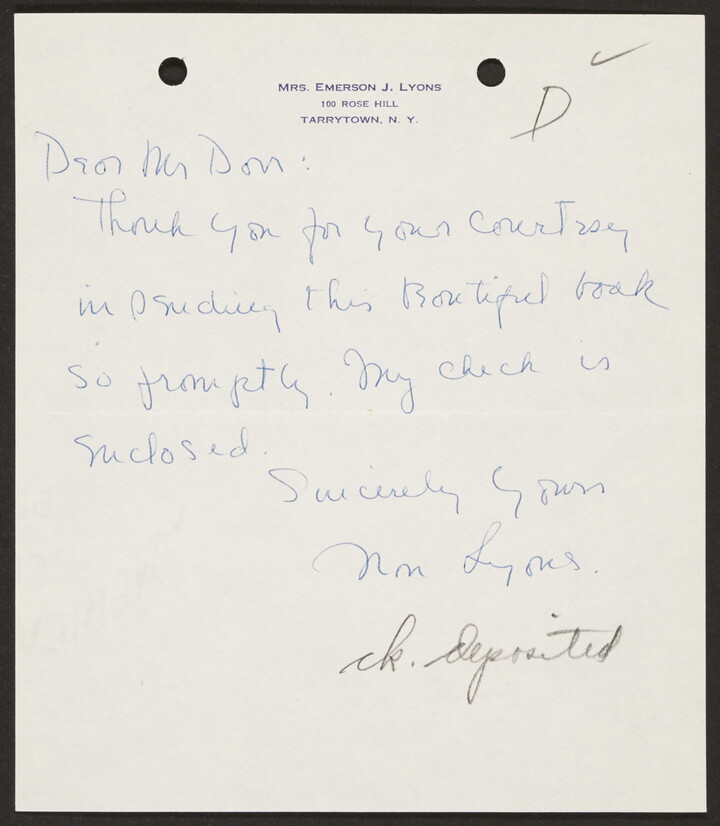 MRS. EMERSON J. LYONS
100 ROSE HILL
TARRYTOWN, N. Y.
D
Dear Mr Dorr:
Thank you for your courtesy
in sending this Beautiful book
so promptly. My check is
enclosed.
Sincerely yours
Lyons.
ck. deposited